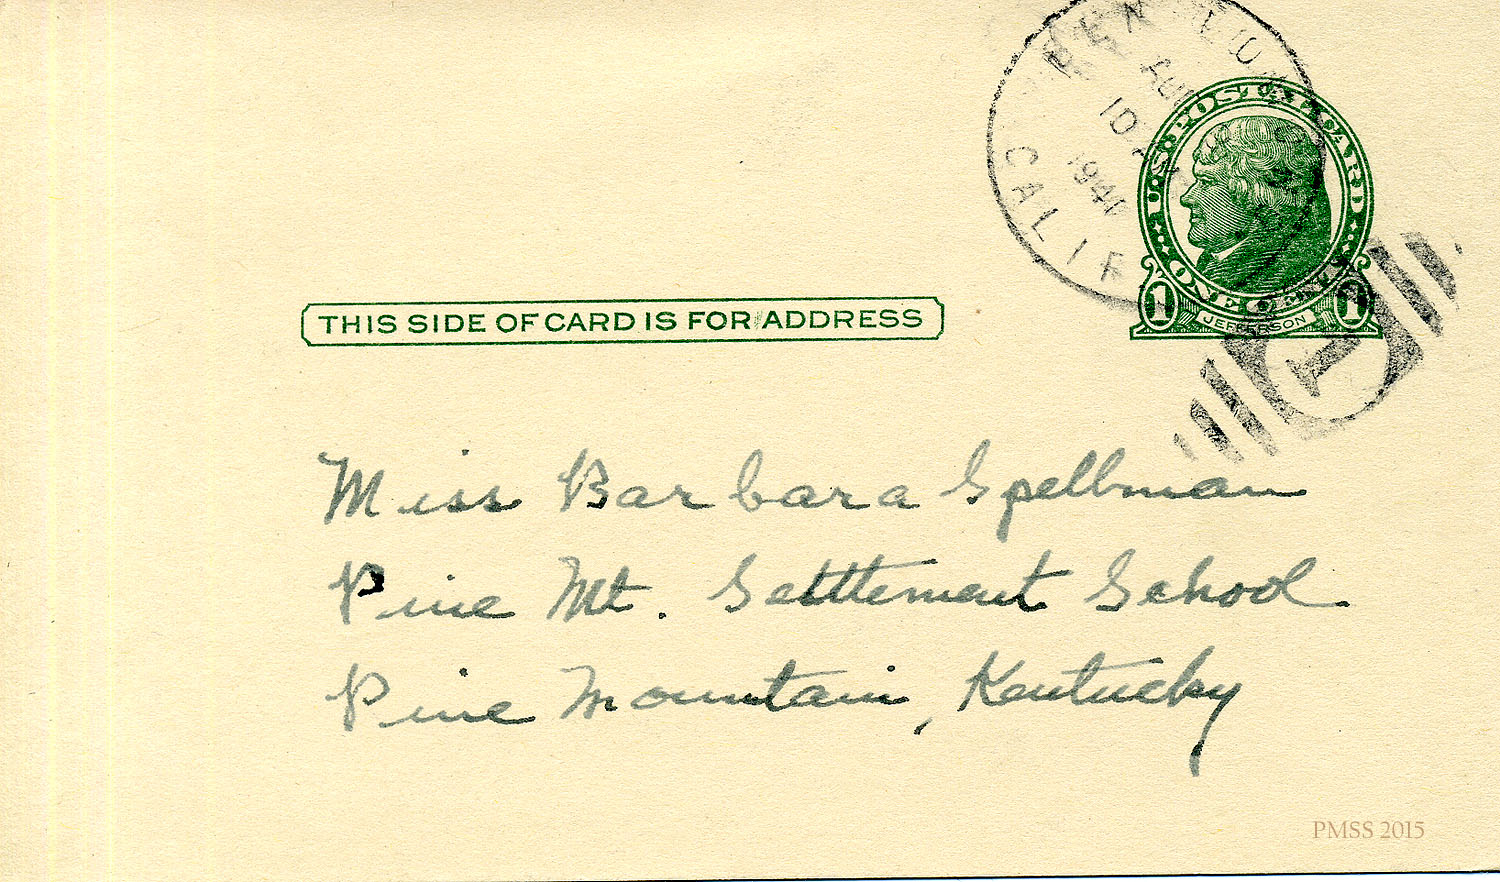 CALIF
AUG
10 A
194
U.S. POSTAL CARD
ONE CENT
1 JEFFERSON 1
1
THIS SIDE OF CARD IS FOR ADDRESS
Miss Barbara Spellman
Pine Mt. Settlement School
Pine Mountain, Kentucky
PMSS 2015